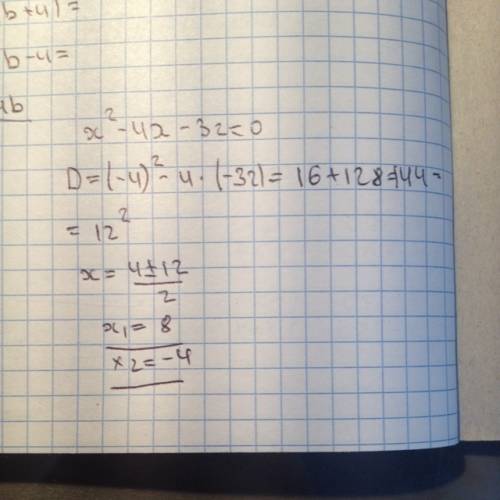 b+4)=
b-4=
4b
x²-4x-32=0
D=(-4)²-4·(-32)=16+128=144=
=12²
x=4±12/2
x₁=8
x2=-4